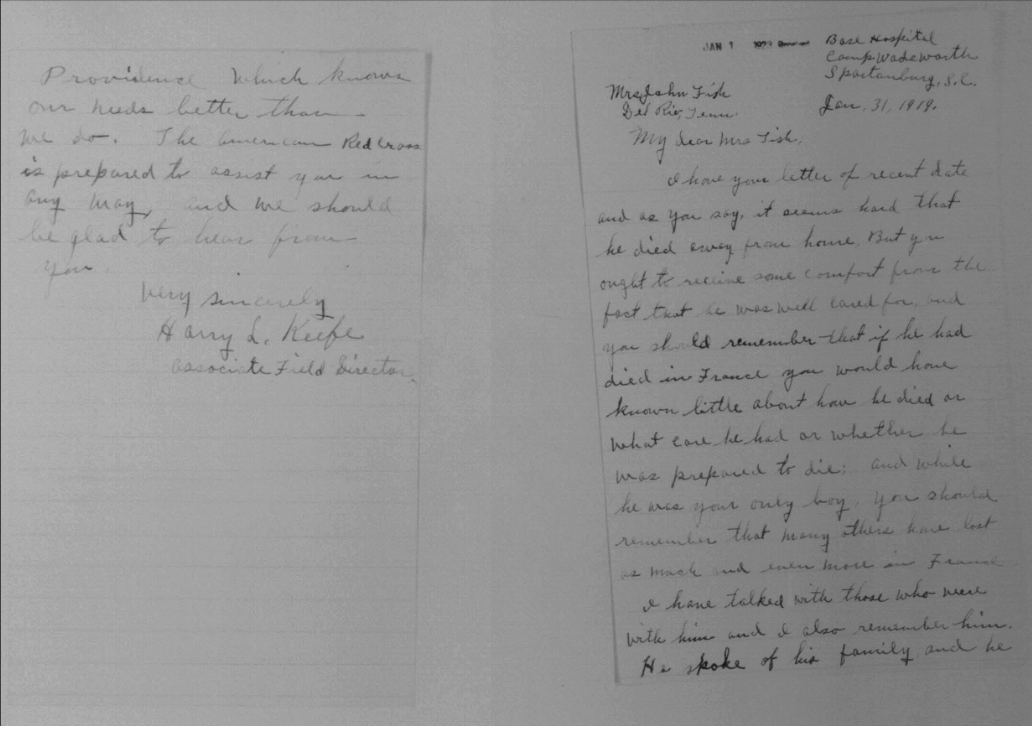 Providence which knows
our needs better than
we do. The American Red Cross
is prepared to assist you in
any way, and we should
be glad to hear from
you.
Very sincerely
Harry L. Keefe
Associate Field Director.
JAN 1
Base Hospital
Camp Wadsworth
Spartanburg, S.C.
Jan, 31, 1919.
Mrs John Fish
Del Rio, Tenn
My dear Mrs Fish,
I have your letter of recent date
and as you say, it seems hard that
he died away from home. But you
ought to receive some comfort from the
fact that he was well cared for, and
you should remember that if he had
died in France you would have
known little about how he died or
what care he had or whether he
was prepared to die: and while
he was your only boy, you should
remember that many others have lost
as much and even more in France
I have talked with those who were
with him and I also remember him.
He spoke of his family and he